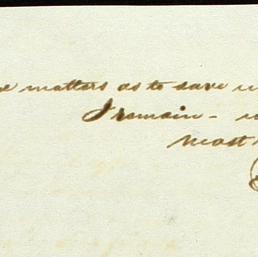 matters as to save
I remain -
most